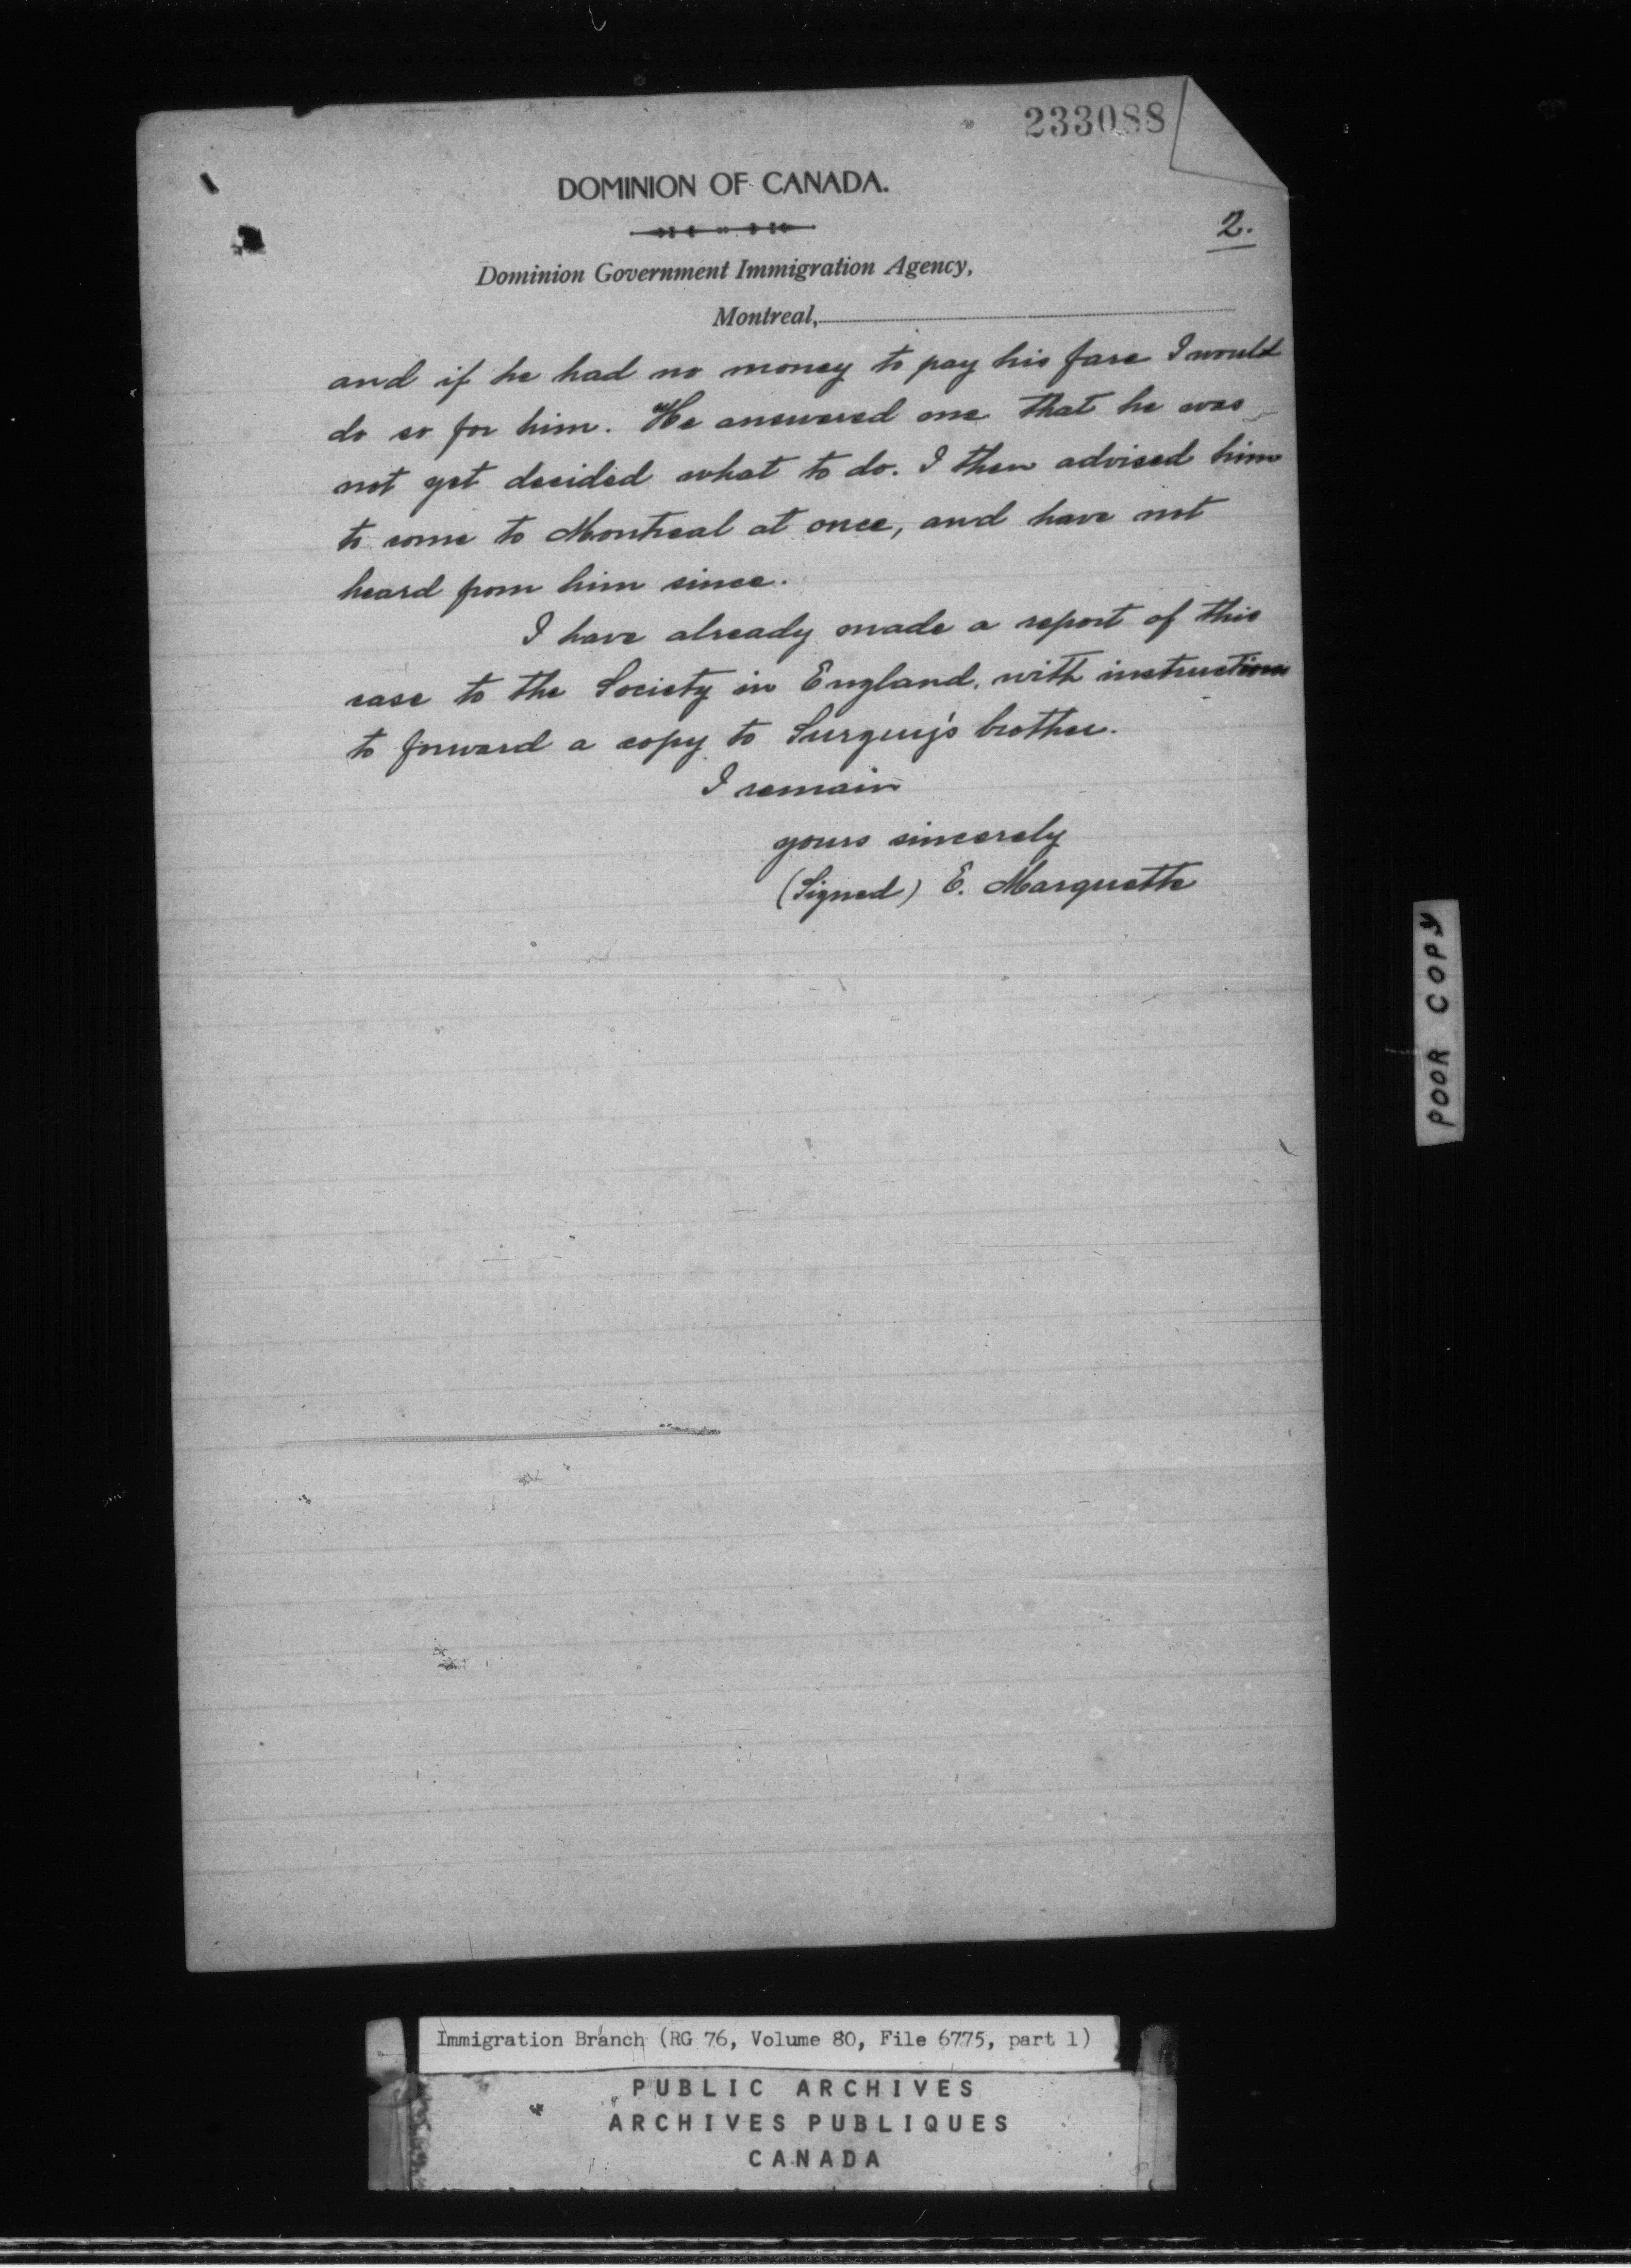 233088
DOMINION OF CANADA.
2.
Dominion Government Immigration Agency,
Montreal,
and if he had no money to pay his fare I would
do so for him. He answered me that he was
not yet decided what to do. I then advised him
to come to Montreal at once, and have not
heard from him since.
I have already made a report of this
case to the Society in England, with instructions
to forward a copy to Surguy's brother.
I remain
yours sincerely
(Signed) E. Marquette
POOR COPY
Immigration Branch (RG 76, Volume 80, File 6775, part 1)
PUBLIC ARCHIVES
ARCHIVES PUBLIQUES
CANADA